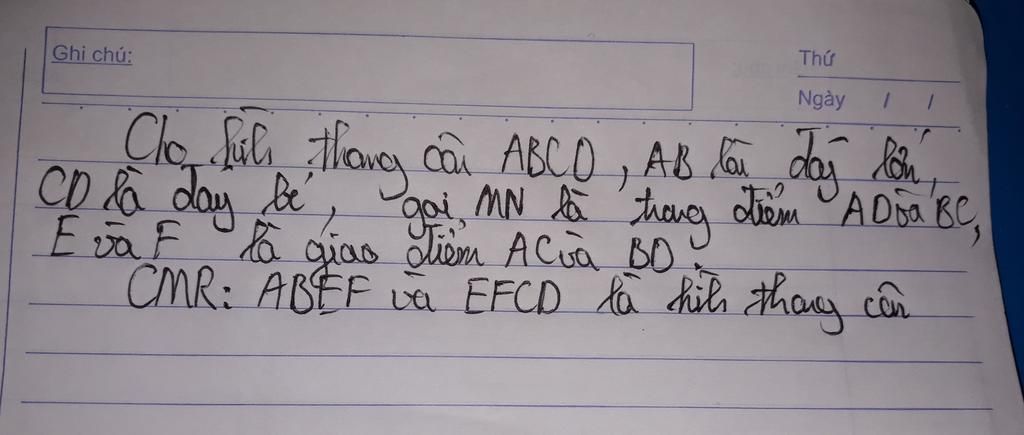 Ghi chú:
Thứ
Ngày / /
Cho hình thang cân ABCD, AB là đáy lớn,
CD là đay bé, gọi MN là trung điểm AD và BC,
E và F là giao điểm AC và BD.
CMR: ABEF và EFCD là hình thang cân